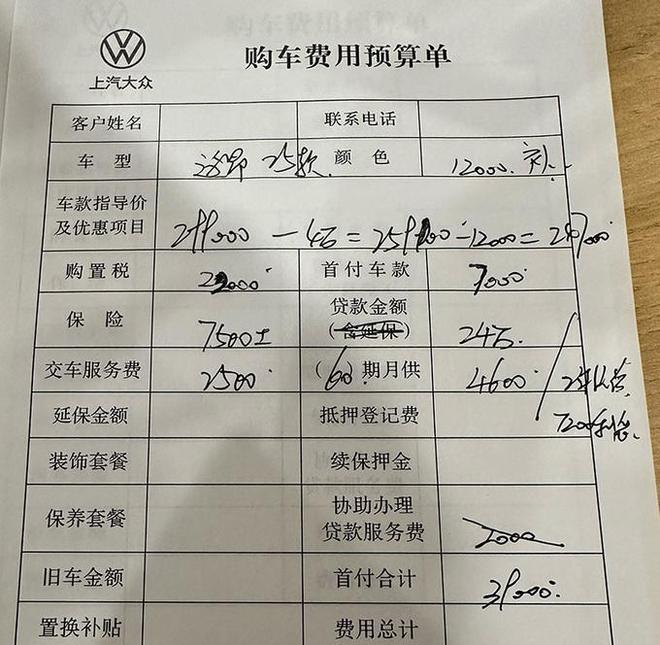 上汽大众
购车费用预算单
客户姓名 联系电话
车型 途昂 25款. 颜色 12000.
车款指导价
及优惠项目 299000 - 4万 = 259000 - 12000 = 247000
购置税 22000 首付车款 7000
保险 7500± 贷款金额
(含延保) 24万.
交车服务费 2500 (60)期月供 4600 / 2年
延保金额 抵押登记费 7200
装饰套餐 续保押金
保养套餐 协助办理
贷款服务费 2000
旧车金额 首付合计 39000.
置换补贴 费用总计